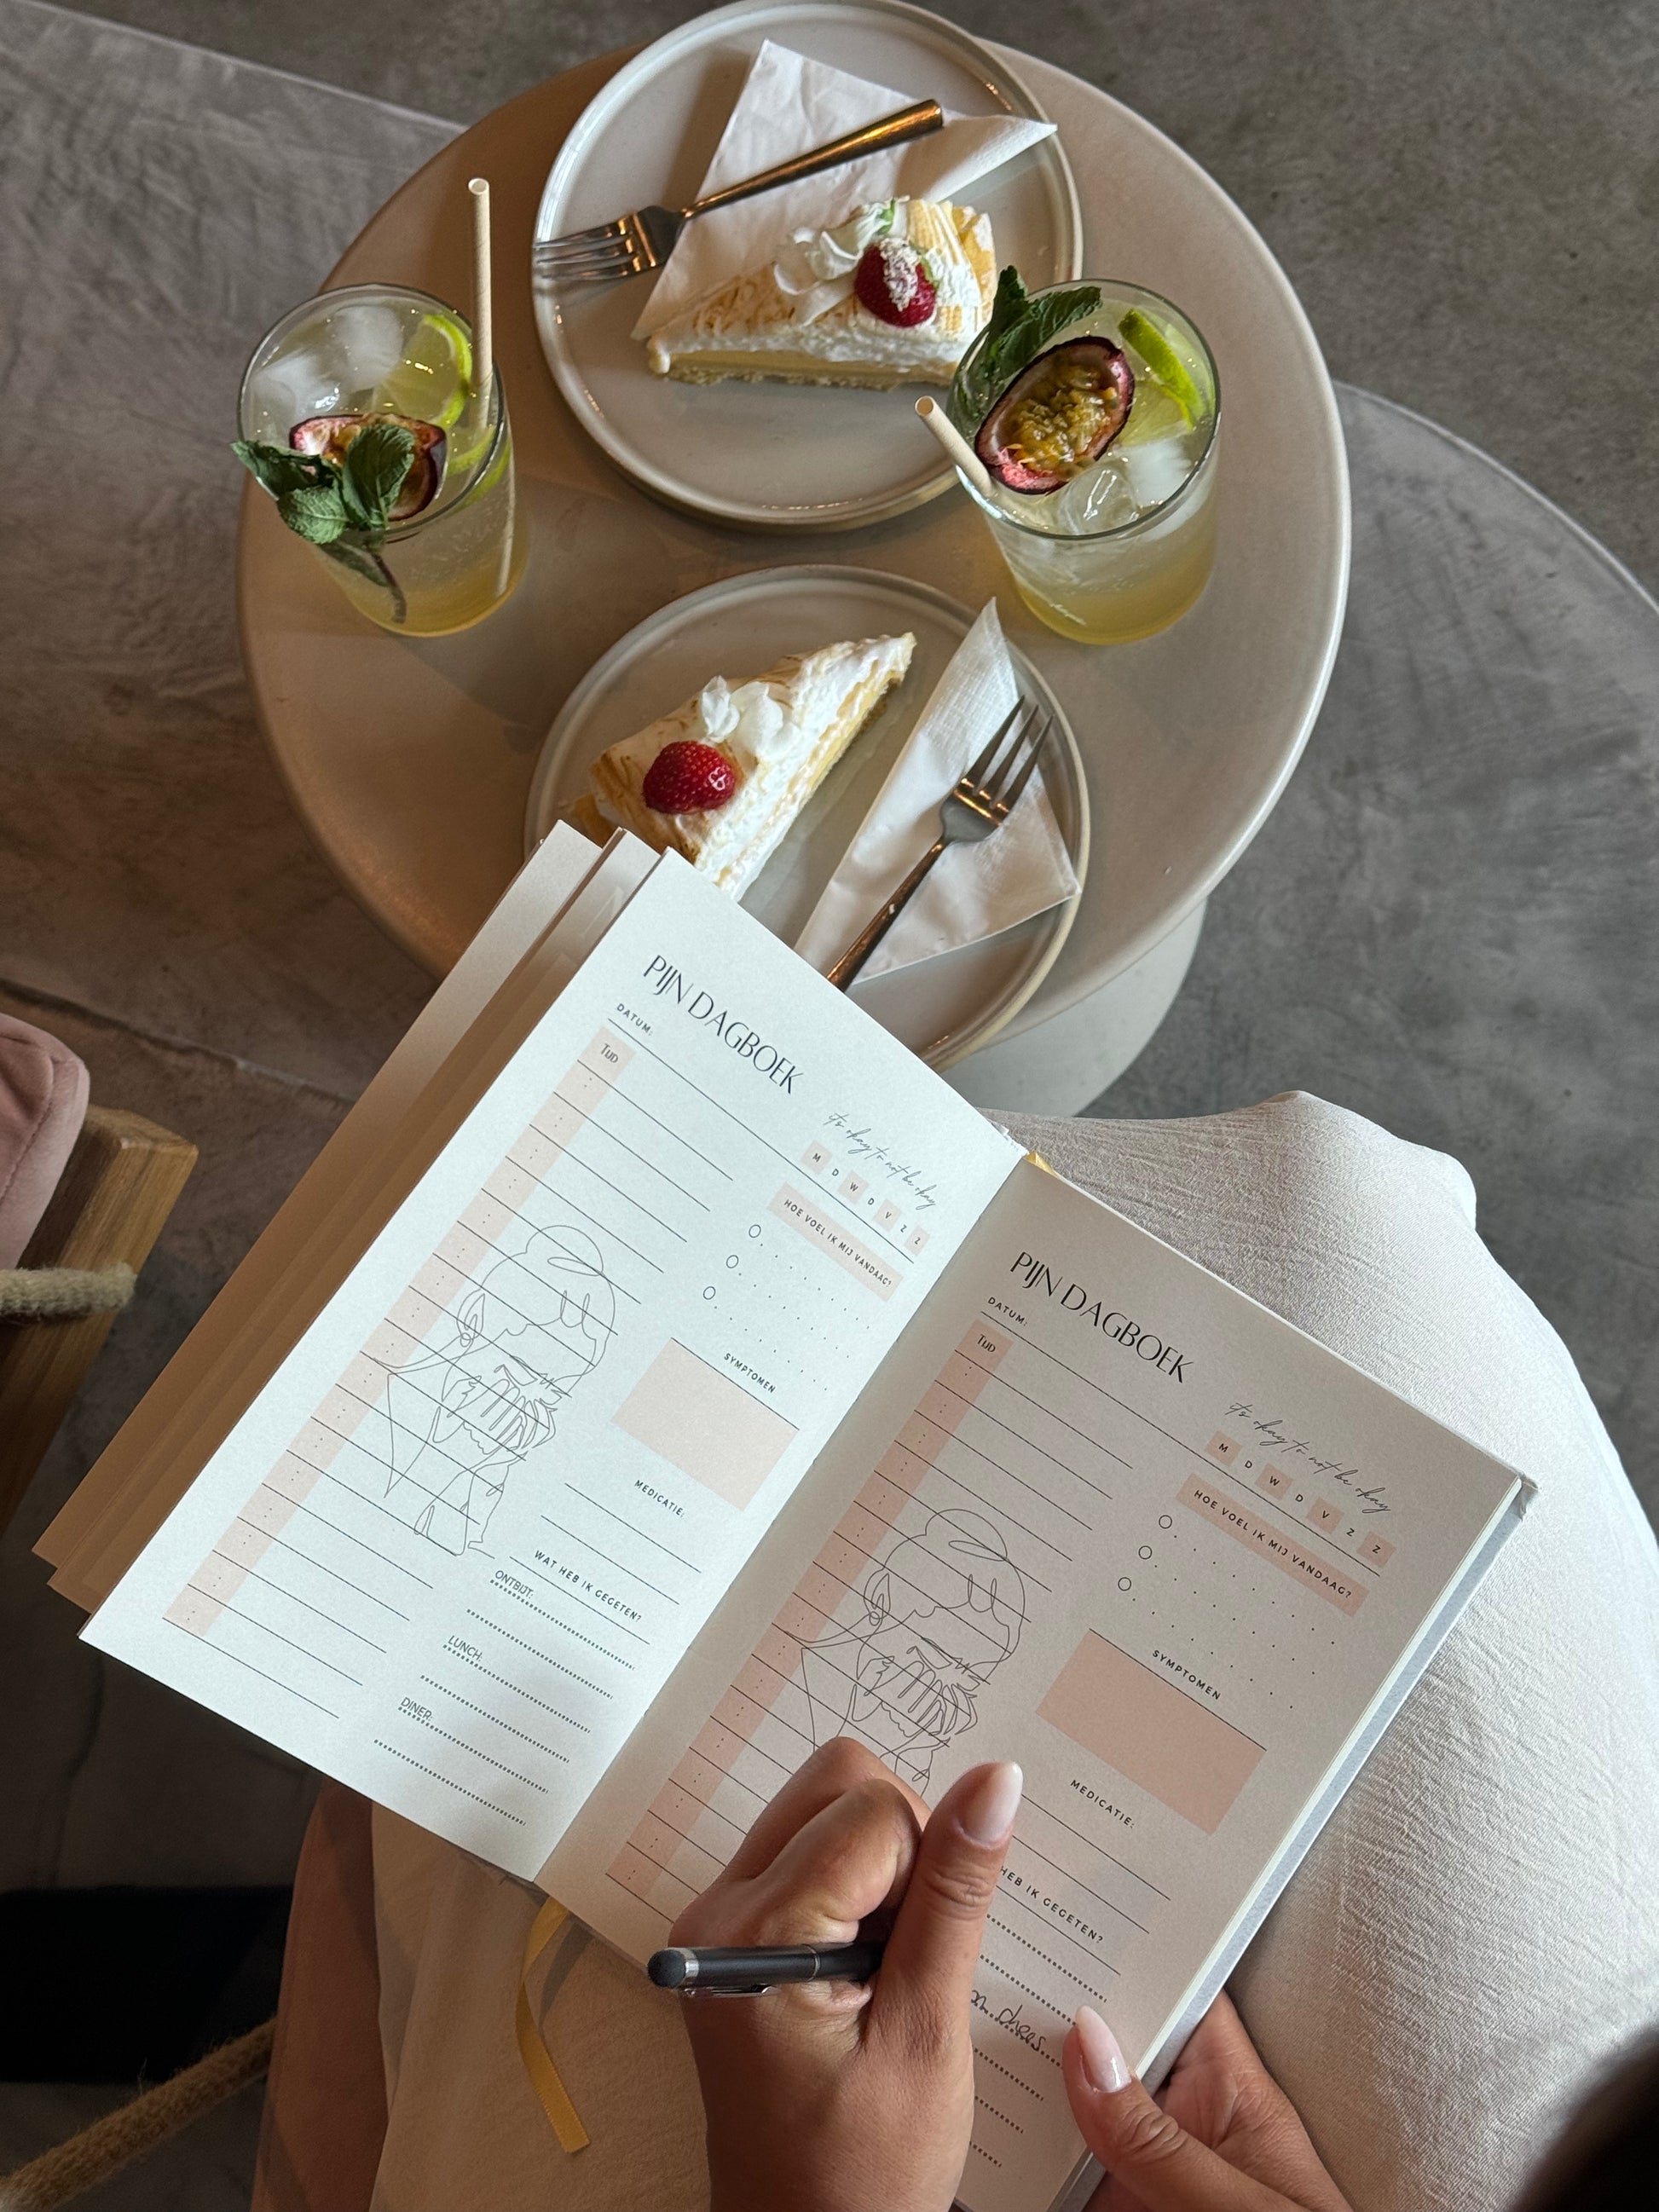 PIJN DAGBOEK
DATUM:
it's okay to not be okay
M D W D V Z Z
TIJD
HOE VOEL IK MIJ VANDAAG?
SYMPTOMEN
MEDICATIE:
WAT HEB IK GEGETEN?
ONTBIJT:
LUNCH:
DINER:
PIJN DAGBOEK
DATUM:
it's okay to not be okay
M D W D V Z Z
TIJD
HOE VOEL IK MIJ VANDAAG?
SYMPTOMEN
MEDICATIE:
HEB IK GEGETEN?